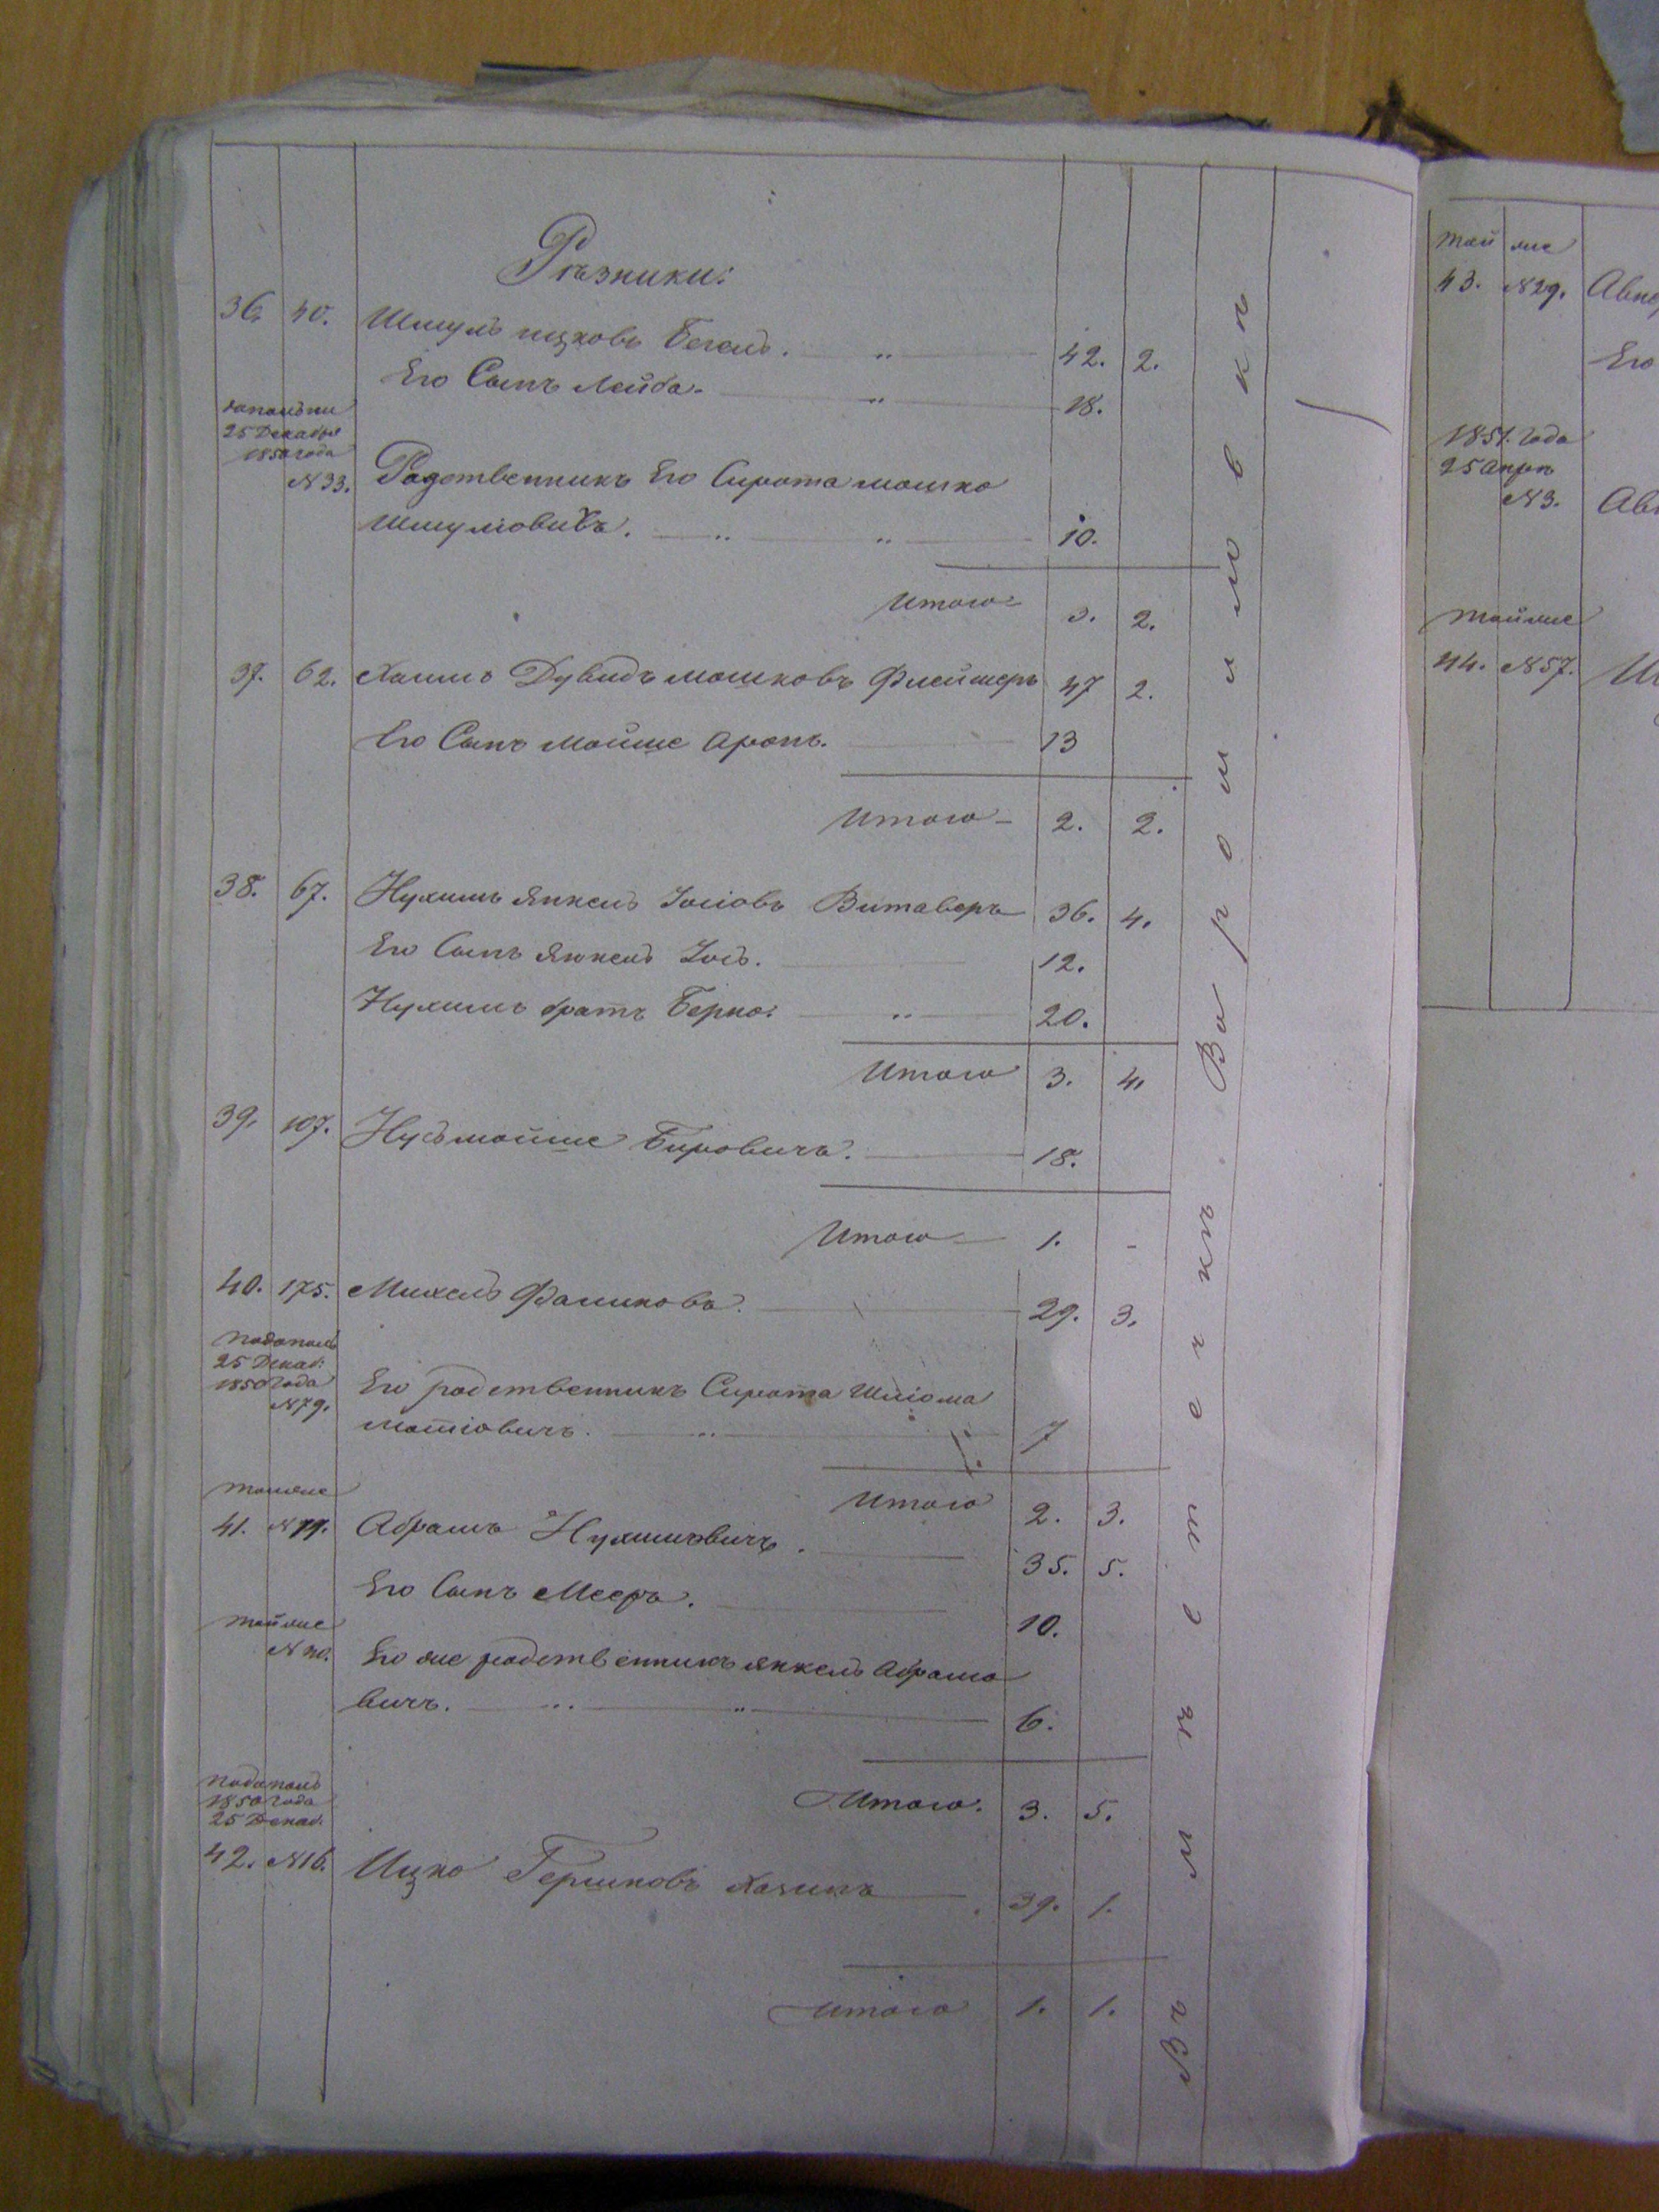 Рѣзники:
36. 40. Шмуль ицковъ Бегель. 42. 2.
Его Сынъ Лейба. 18.
25 Декабря
1850 года
N 33. Родственникъ Его Сирота мошко
Шмуліовичъ. 10.
Итого 3. 2.
37. 62. Хаимъ Дувидъ мошковъ Флейшеръ 47 2.
Его Сынъ мойше аронъ. 13
Итого 2. 2.
38. 67. Нухимъ Янкель Іосіовъ Витаверъ 36. 4.
Его Сынъ Янкель Іось. 12.
Нухимъ братъ Берко. 20.
Итого 3. 4.
39. 107. Нусьмойше Бировичъ. 18.
Итого 1. -
40. 175. Михель Фаликовъ. 29. 3.
25 Декаб:
1850 года
N 79. Его родственникъ Сирота Шліома
мотіовичъ. 7
Итого 2. 3.
41. Абрамъ Нухимовичъ. 35. 5.
Его Сынъ Мееръ. 10.
той же
Его же родственникъ янкель абрамо
вичъ. 6.
Итого. 3. 5.
1850 года
25 Декаб.
42. N 16. Ицко Гершковъ 39. 1.
Итого 1. 1.
Въ мѣстечкѣ Ворошиловки
той же
43. N 29.
Его
1851. года
25 апрѣ
N 3.
той же
44. N 57.